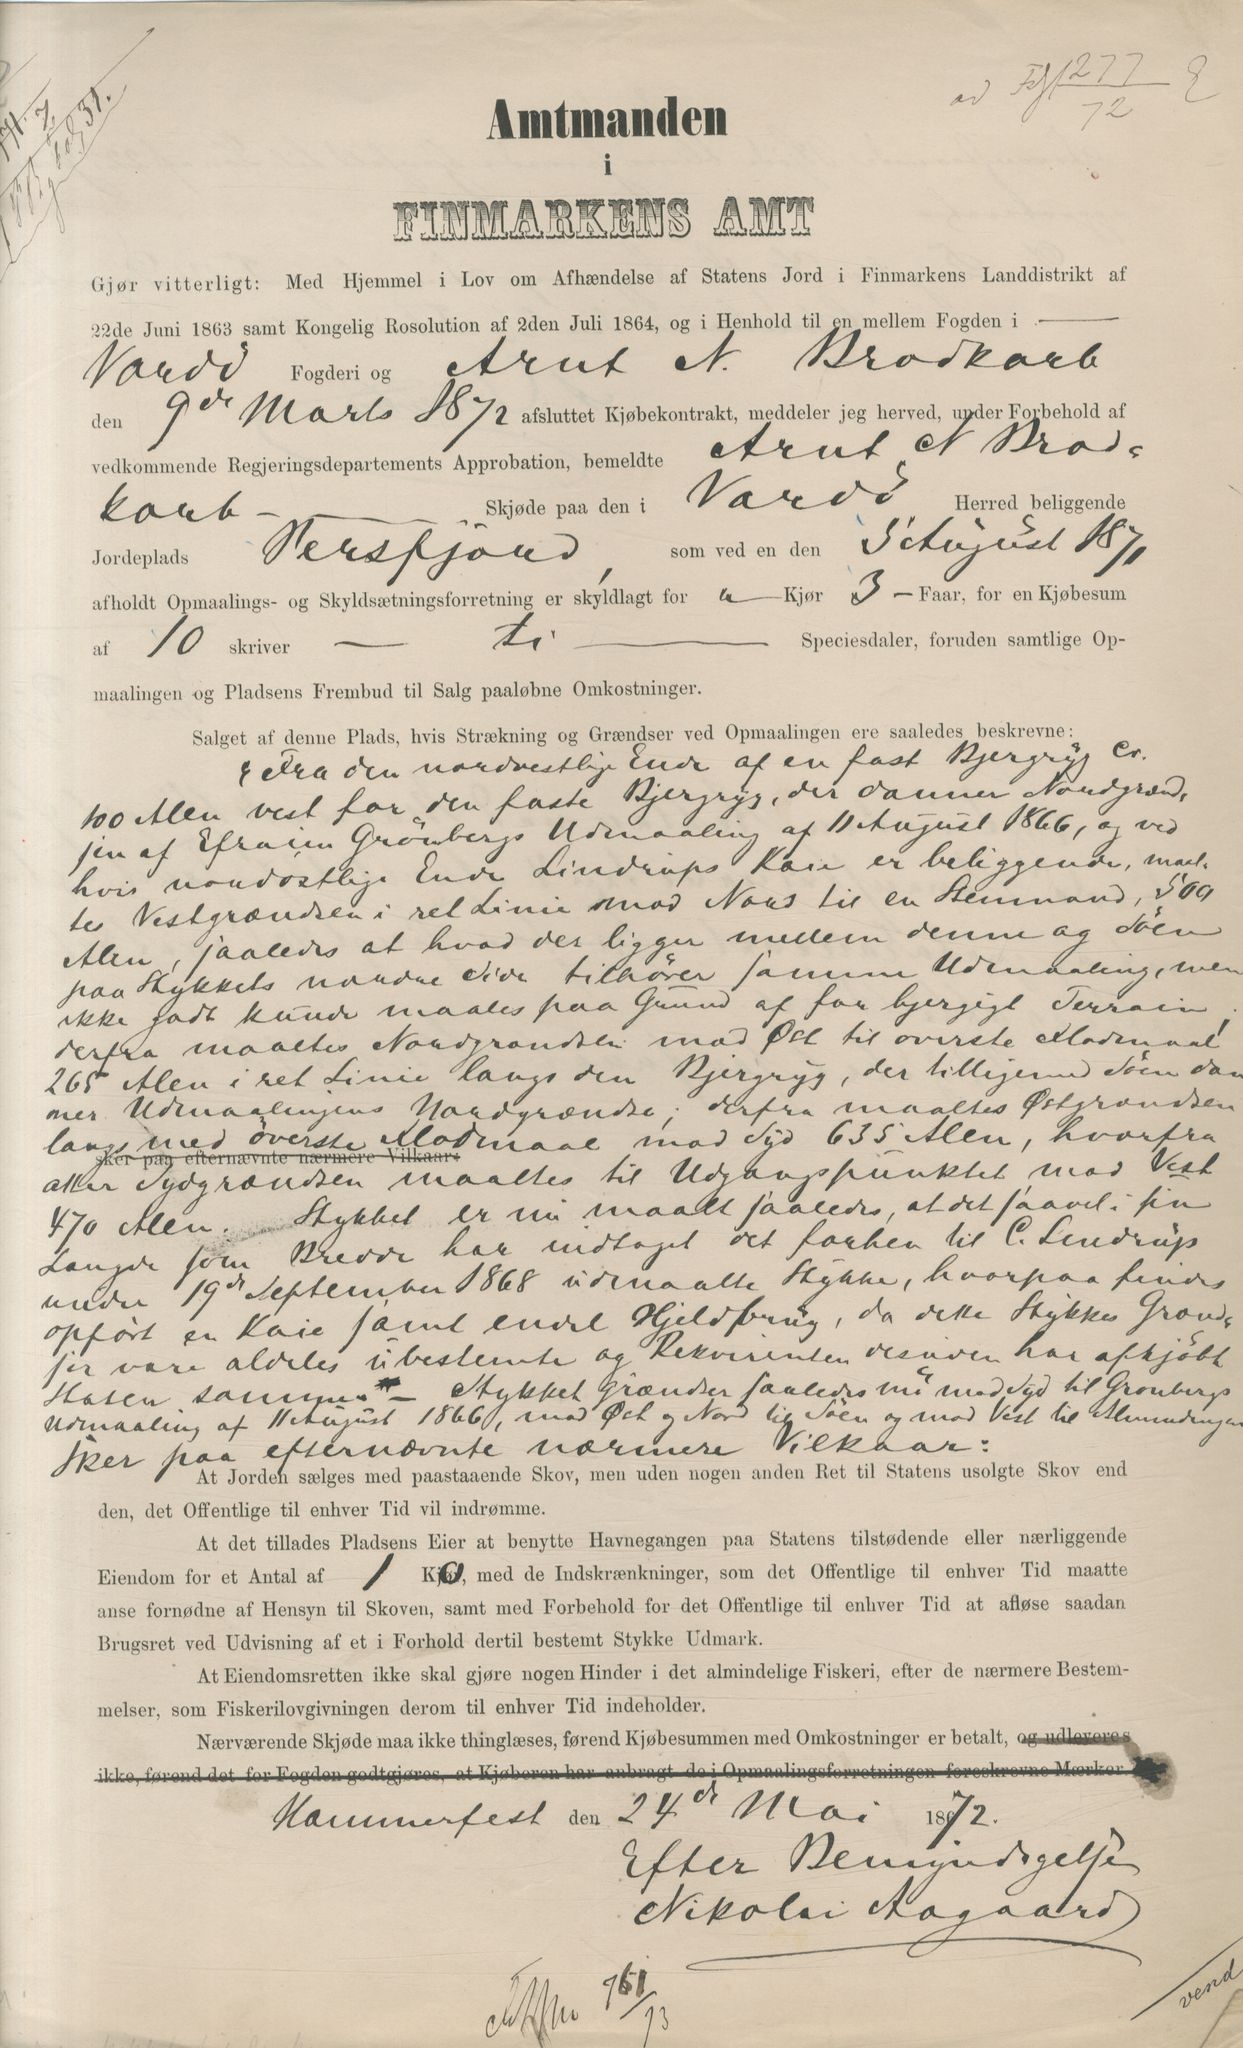 ad Fgf 277/72
Amtmanden
i
FINMARKENS AMT
Gjør vitterligt: Med Hjemmel i Lov om Afhændelse af Statens Jord i Finmarkens Landdistrikt af
22de Juni 1863 samt Kongelig Rosolution af 2den Juli 1864, og i Henhold til en mellem Fogden i
Vardö Fogderi og Arnt N. Brodkorb
den 9de Marts 1872 afsluttet Kjøbekontrakt, meddeler jeg herved, under Forbehold af
vedkommende Regjeringsdepartements Approbation, bemeldte Arnt N Brod-
korb Skjøde paa den i Vardö Herred beliggende
Jordeplads Persfjord, som ved en den 5 August 1871
afholdt Opmaalings- og Skyldsætningsforretning er skyldlagt for " Kjør 3 – Faar, for en Kjøbesum
af 10 skriver – ti – Speciesdaler, foruden samtlige Op-
maalingen og Pladsens Frembud til Salg paaløbne Omkostninger.
Salget af denne Plads, hvis Strækning og Grændser ved Opmaalingen ere saaledes beskrevne:
"Fra den nordvestlige Ende af en fast Bjergryg Ca.
100 Alen vest for den faste Bjergryg, der danner Nordgrænd-
sen af Efraim Grönbergs Udmaaling af 11 August 1866, og ved
hvis nordöstlige Ende Lindrups Kaie er beliggende, maal-
tes Vestgrændsen i ret Linie mod Nord til en Stenmand, 500
Alen, saaledes at hvad der ligger mellem denne og Söen
paa Stykkets nordre Side tilhörer samme Udmaaling, men
ikke godt kunde maales paa Grund af for bjergigt Terrain;
derfra maaltes Nordgrændsen mod Øst til överste Flodmaal
265 Alen i ret Linie langs den Bjergryg, der tilligemed Söen dan
ner Udmaalingens Nordgrændse; derfra maaltes Østgrændsen
langs med överste Flodmaal mod Syd 635 Alen, hvorfra
sker paa efternævnte nærmere Vilkaar:
atter Sydgrændsen maaltes til Udgangspunktet mod Vest
470 Alen. Stykket er nu maalt saaledes, at det saavel i sin
Længde som Bredde har indtaget det forhen til C. Lindrup
under 19de September 1868 udmaalte Stykke, hvorpaa findes
opfört en Kaie samt endel Hjeldbrug, da dette Stykkes Grænd-
ser vare aldeles ubestemte og Rekvirenten desuden har afkjöbt
Staten samme. – Stykket grændser saaledes nu mod Syd til Grönbergs
Udmaaling af 11 August 1866, mod Øst og Nord til Söen og mod Vest til Almindingen
sker paa efternævnte nærmere Vilkaar:
At Jorden sælges med paastaaende Skov, men uden nogen anden Ret til Statens usolgte Skov end
den, det Offentlige til enhver Tid vil indrømme.
At det tillades Pladsens Eier at benytte Havnegangen paa Statens tilstødende eller nærliggende
Eiendom for et Antal af 1 Ko, med de Indskrænkninger, som det Offentlige til enhver Tid maatte
anse fornødne af Hensyn til Skoven, samt med Forbehold for det Offentlige til enhver Tid at afløse saadan
Brugsret ved Udvisning af et i Forhold dertil bestemt Stykke Udmark.
At Eiendomsretten ikke skal gjøre nogen Hinder i det almindelige Fiskeri, efter de nærmere Bestem-
melser, som Fiskerilovgivningen derom til enhver Tid indeholder.
Nærværende Skjøde maa ikke thinglæses, førend Kjøbesummen med Omkostninger er betalt, og udleveres
ikke, førend det for Fogden godtgjøres, at Kjøberen har anbragt de i Opmaalingsforretningen foreskrevne Mærker
Hammerfest den 24de Mai 1872.
Efter Bemyndigelse
Nikolai Aagaard
761/73
vend